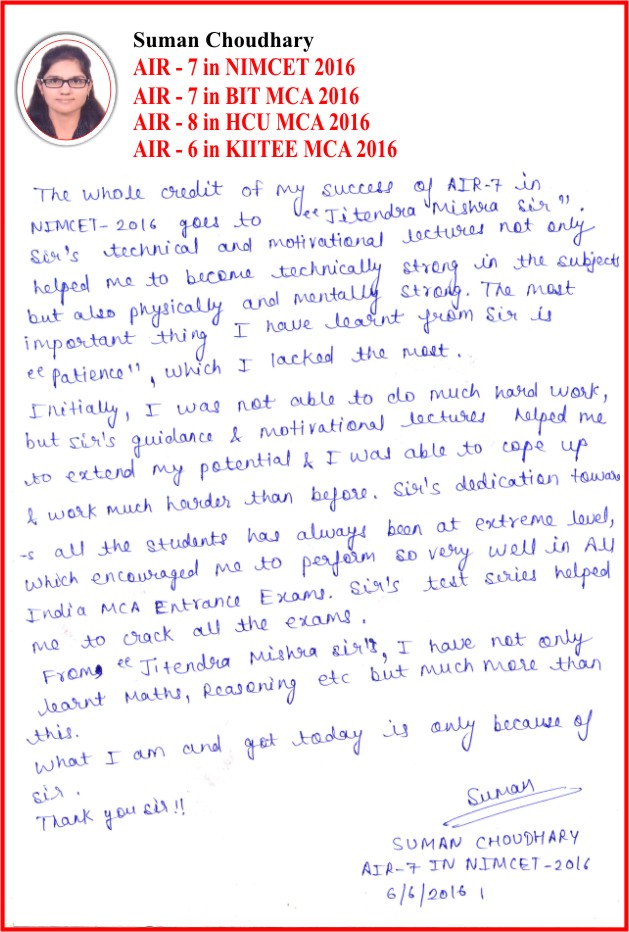 Suman Choudhary
AIR - 7 in NIMCET 2016
AIR - 7 in BIT MCA 2016
AIR - 8 in HCU MCA 2016
AIR - 6 in KIITEE MCA 2016
The whole credit of my success of AIR-7 in
NIMCET-2016 goes to "Jitendra Mishra Sir".
Sir's technical and motivational lectures not only
helped me to become technically strong in the subjects
but also physically and mentally strong. The most
important thing I have learnt from Sir is
"Patience", which I lacked the most.
Initially, I was not able to do much hard work,
but sir's guidance & motivational lectures helped me
to extend my potential & I was able to cope up
& work much harder than before. Sir's dedication toward
-s all the students has always been at extreme level,
which encouraged me to perform so very well in All
India MCA Entrance Exams. Sir's test series helped
me to crack all the exams.
From "Jitendra Mishra Sir", I have not only
learnt Maths, Reasoning etc but much more than
this.
What I am and got today is only because of
sir.
Thank you sir!!
Suman
SUMAN CHOUDHARY
AIR-7 IN NIMCET-2016
6/6/2016